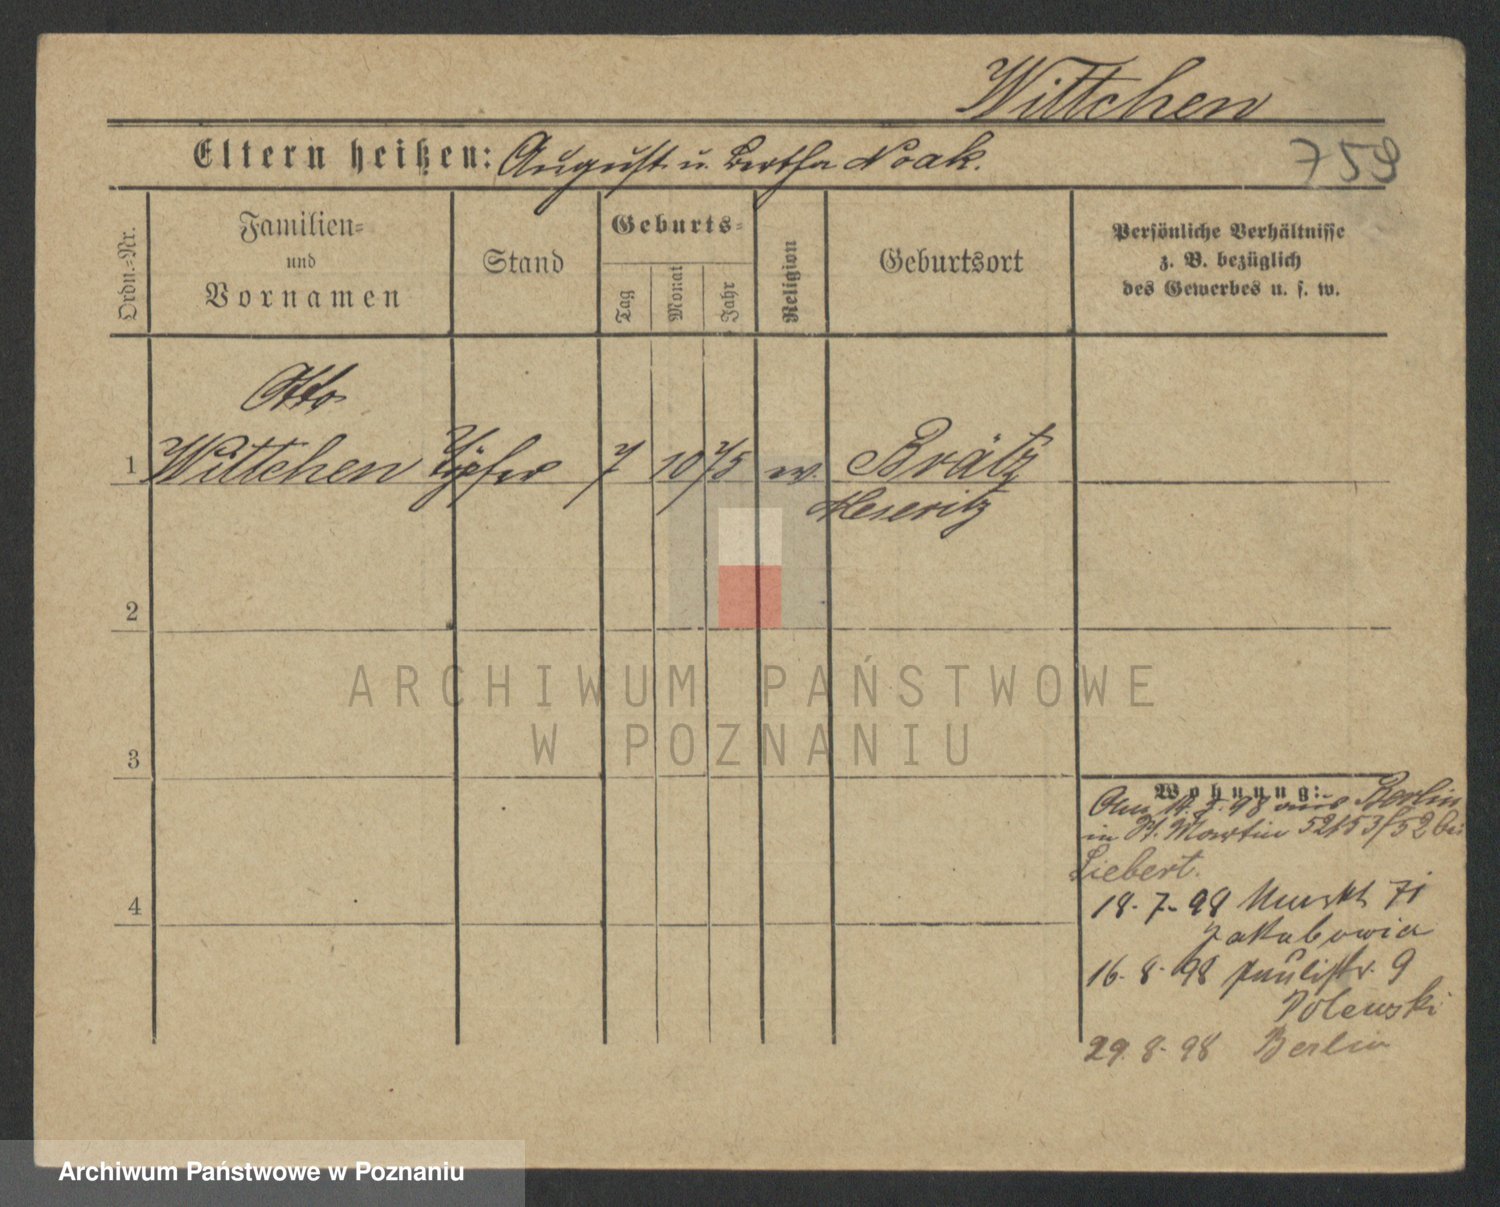 Wittchen
759
Eltern heißen: August u. Bertha Noak.
Ordn.-Nr.
Familien-
und
Vornamen
Stand
Geburts-
Tag
Monat
Jahr
Religion
Geburtsort
Persönliche Verhältnisse
z. B. bezüglich
des Gewerbes u. s. w.
Otto
1 Wittchen Töpfer 7 10 75 ev. Brätz
Meseritz
2
3
4
Wohnung:
98 aus Berlin
in St. Martin 52/53/52 bei
Liebert.
18. 7. 98 71
Jakubowicz
16. 8. 98 Paulistr. 9
Polewski
29. 8. 98 Berlin
ARCHIWUM PAŃSTWOWE
W POZNANIU
Archiwum Państwowe w Poznaniu